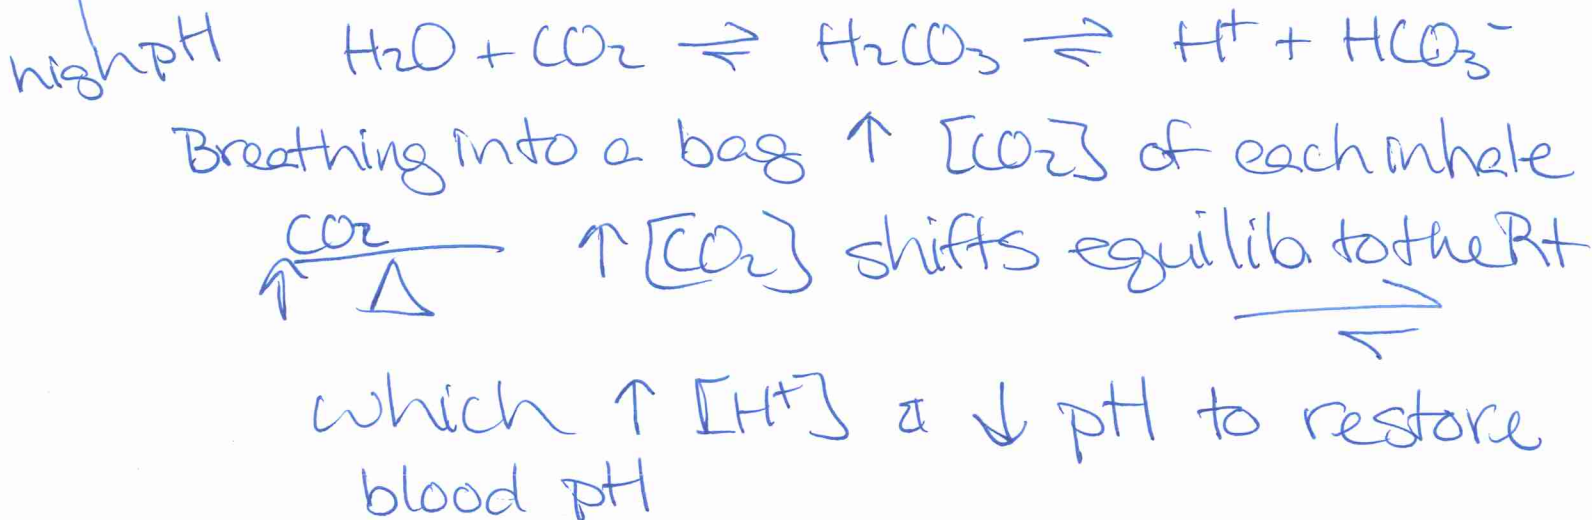 high pH H2O + CO2 ⇌ H2CO3 ⇌ H+ + HCO3-
Breathing into a bag ↑ [CO2] of each inhale
CO2 ↑ Δ ↑ [CO2] shifts equilib. to the Rt ⇌
which ↑ [H+] & ↓ pH to restore
blood pH